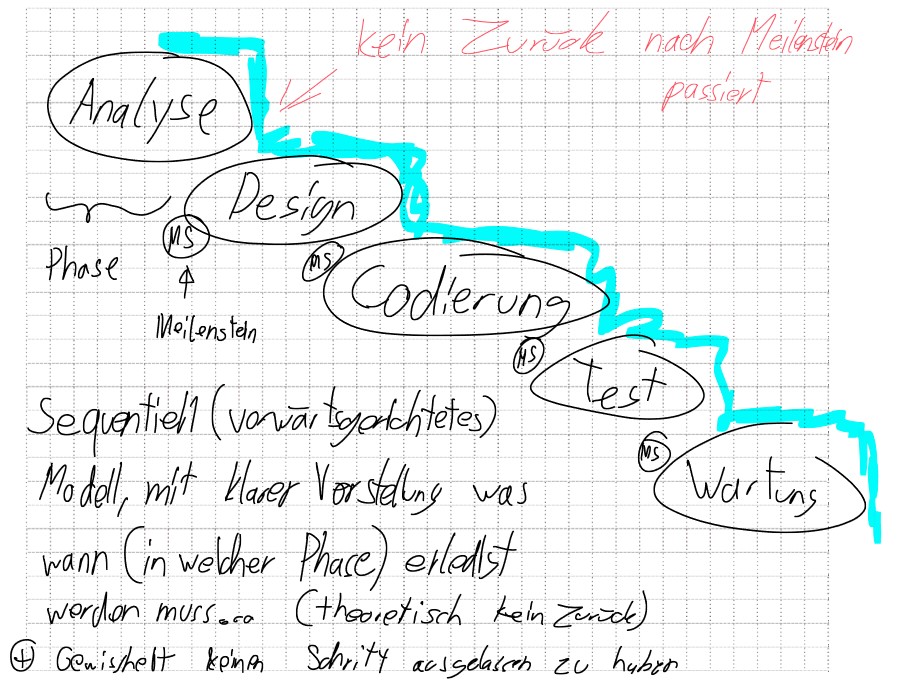 kein Zurück nach Meilenstein
passiert
Analyse
Design
MS
Phase
MS
Codierung
Meilenstein
MS
test
Sequentiell (vorwärtsgerichtetes)
MS
Modell, mit klarer Vorstellung was
Wartung
wann (in welcher Phase) erledigt
werden muss... (theoretisch kein Zurück)
⊕ Gewissheit keinen Schritt ausgelassen zu haben